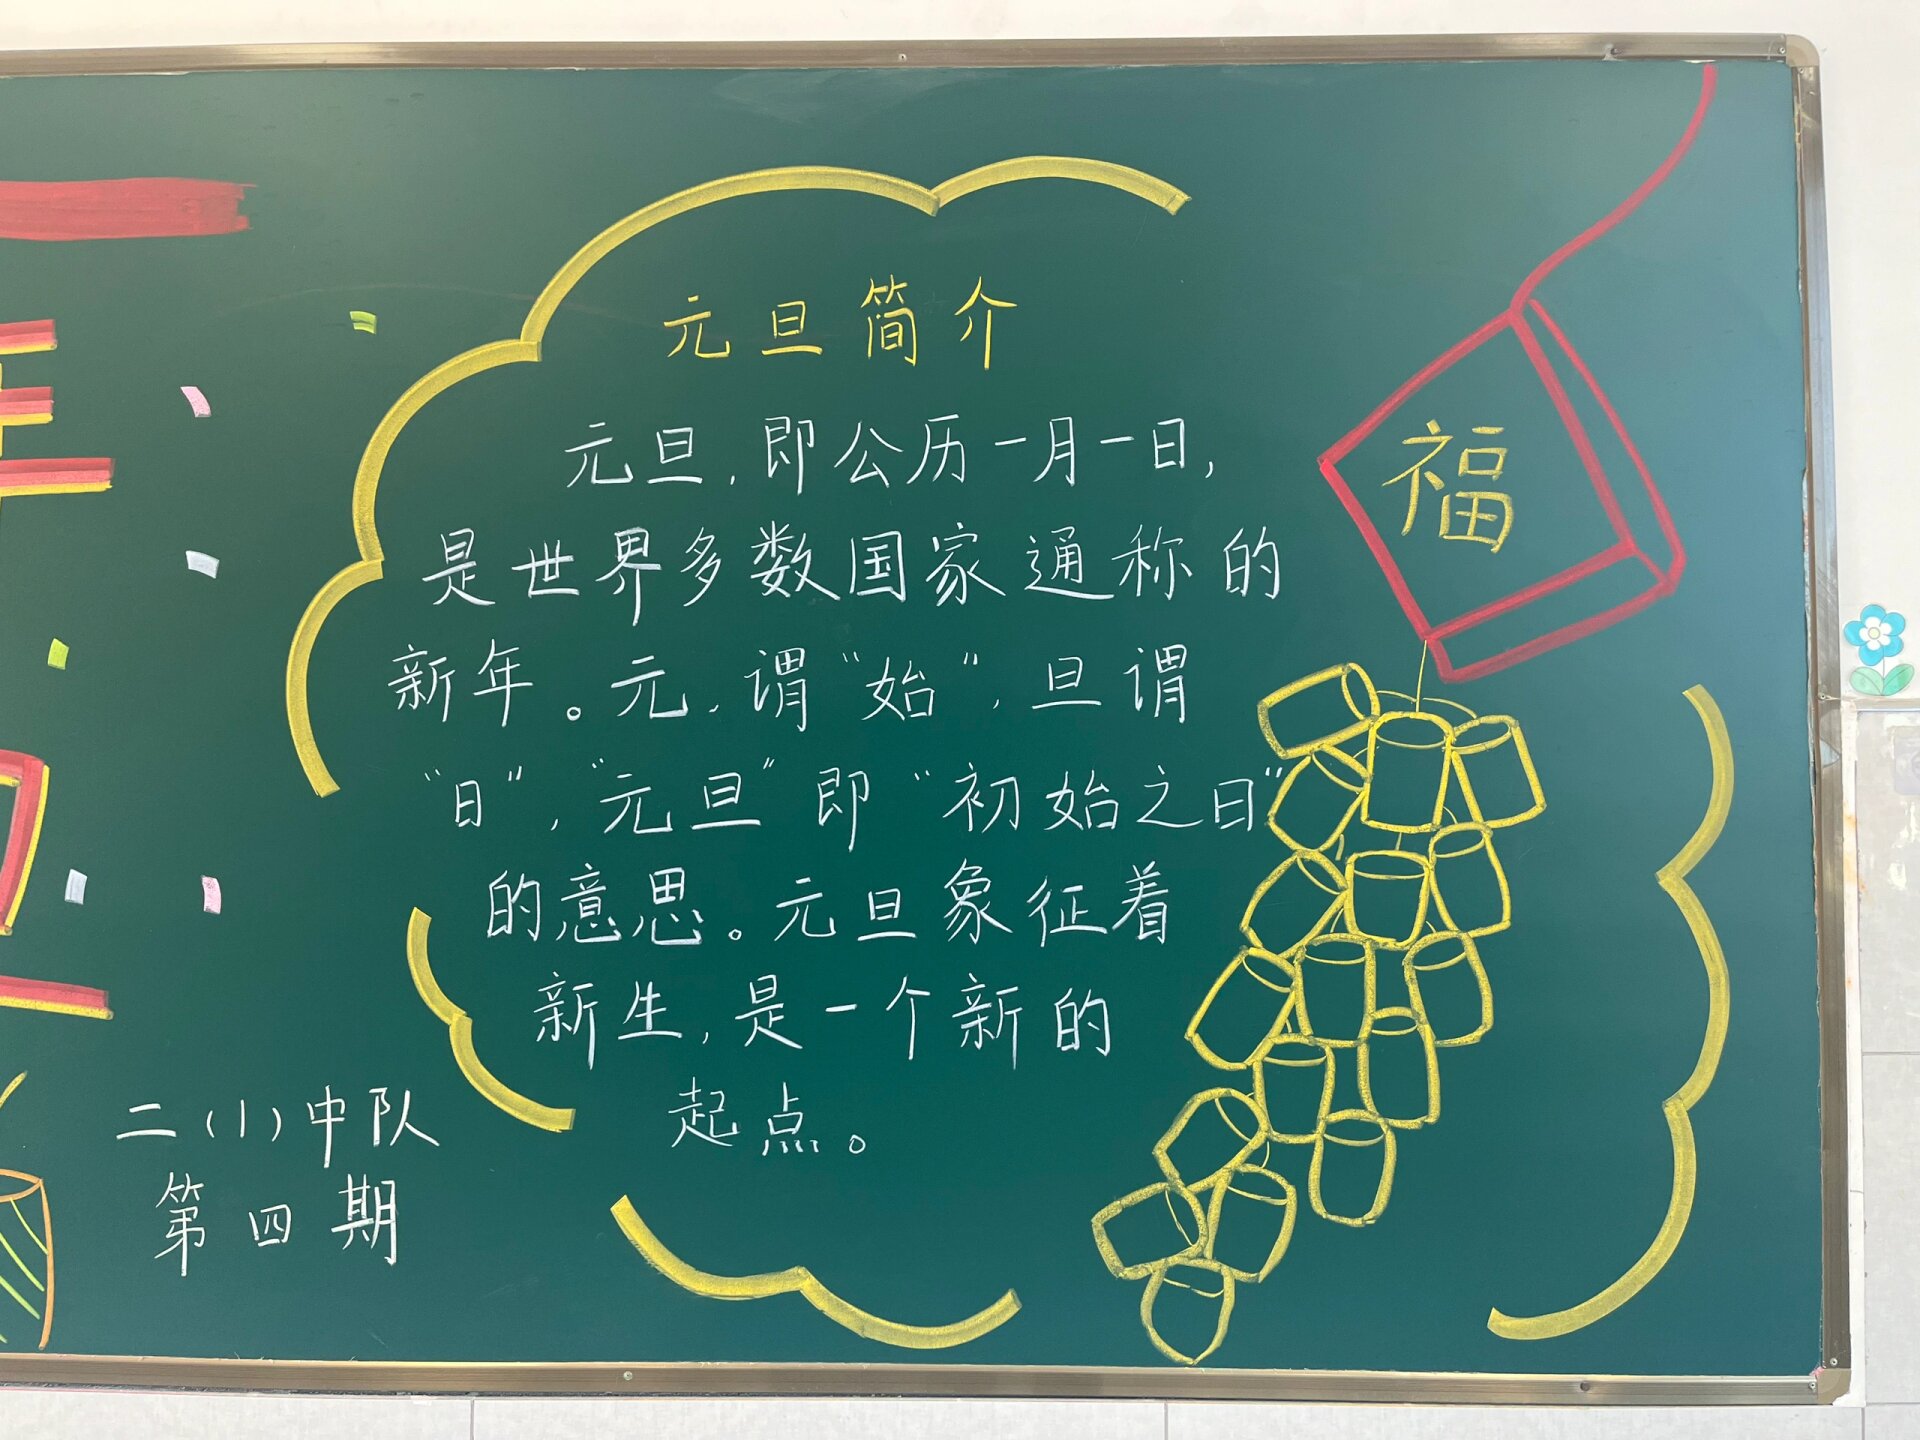 元旦简介
元旦,即公历一月一日,
是世界多数国家通称的
新年。元,谓“始”,旦谓
“日”,“元旦”即“初始之日”
的意思。元旦象征着
新生,是一个新的
起点。
福
二(1)中队
第四期